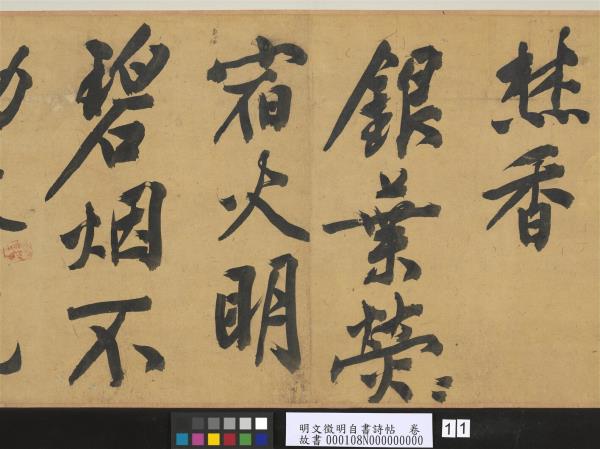 焚香
銀葉熒〻
宿火明
碧烟不
明文徵明自書詩帖 卷
故書000108N000000000
11